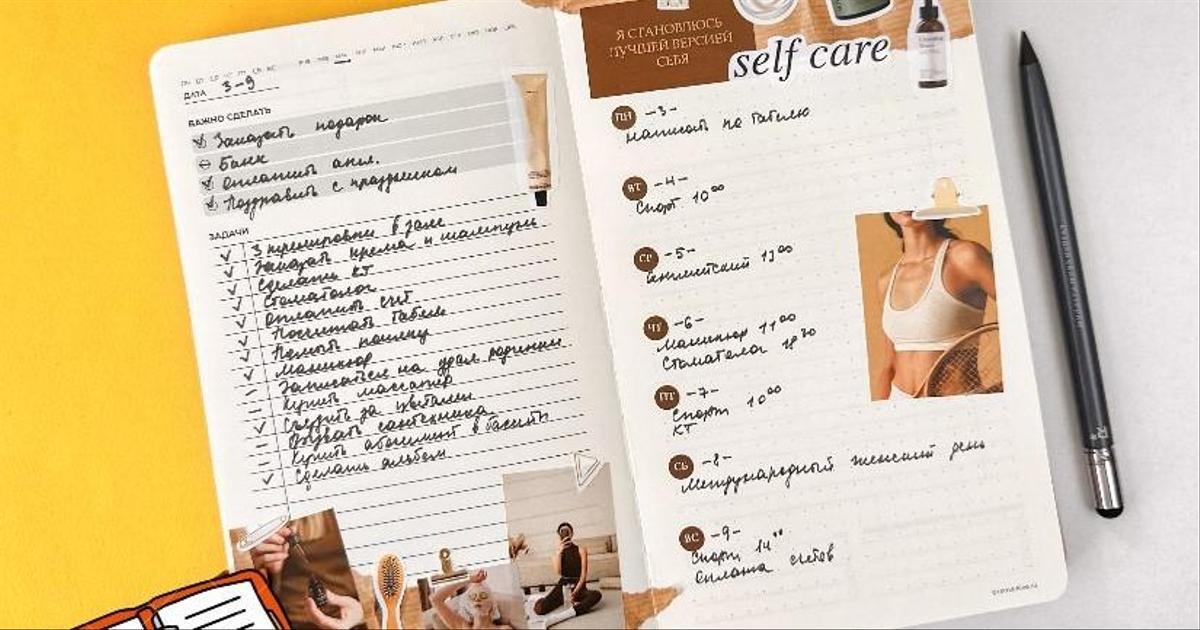 ДАТА 3-9
ВАЖНО СДЕЛАТЬ
Заказать подарок
Банк
Оплатить англ.
Поздравить с праздником
ЗАДАЧИ
3 тренировки в зале
Заказать крема и шампунь
Сделать КТ
Стоматолог
Оплатить счёт
Посчитать табель
Помыть машину
Маникюр
Записаться на удал. родинки
Купить массажер
Съездить за цветами
Вызвать сантехника
Купить абонемент в
Сделать альбом
Я СТАНОВЛЮСЬ
ЛУЧШЕЙ ВЕРСИЕЙ
СЕБЯ
self care
ПН -3-
написать по табелю
ВТ -4-
Спорт 10⁰⁰
СР -5-
Английский 13⁰⁰
ЧТ -6-
Маникюр 11⁰⁰
Стоматолог 18³⁰
ПТ -7-
Спорт 10⁰⁰
КТ
СБ -8-
Международный женский день
ВС -9-
Спорт 14⁰⁰
Оплата счетов